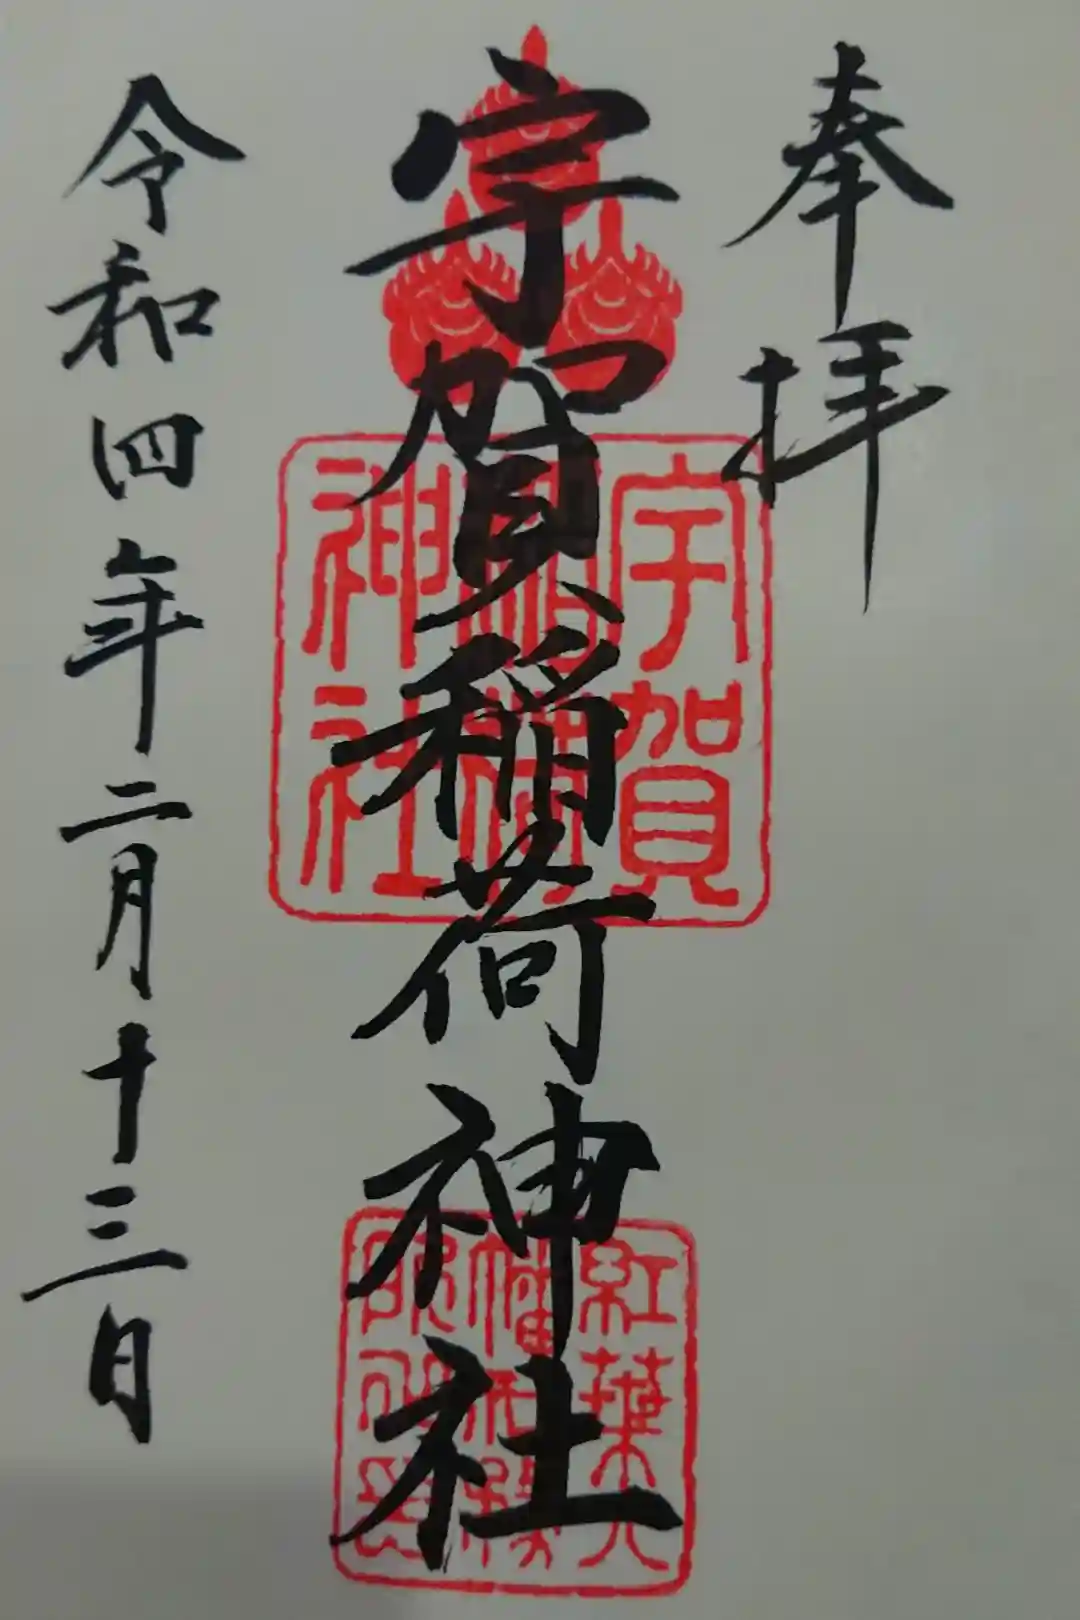 奉拝
宇賀稲荷神社
宇賀
稲荷
神社
紅葉八
幡
令和四年二月十三日